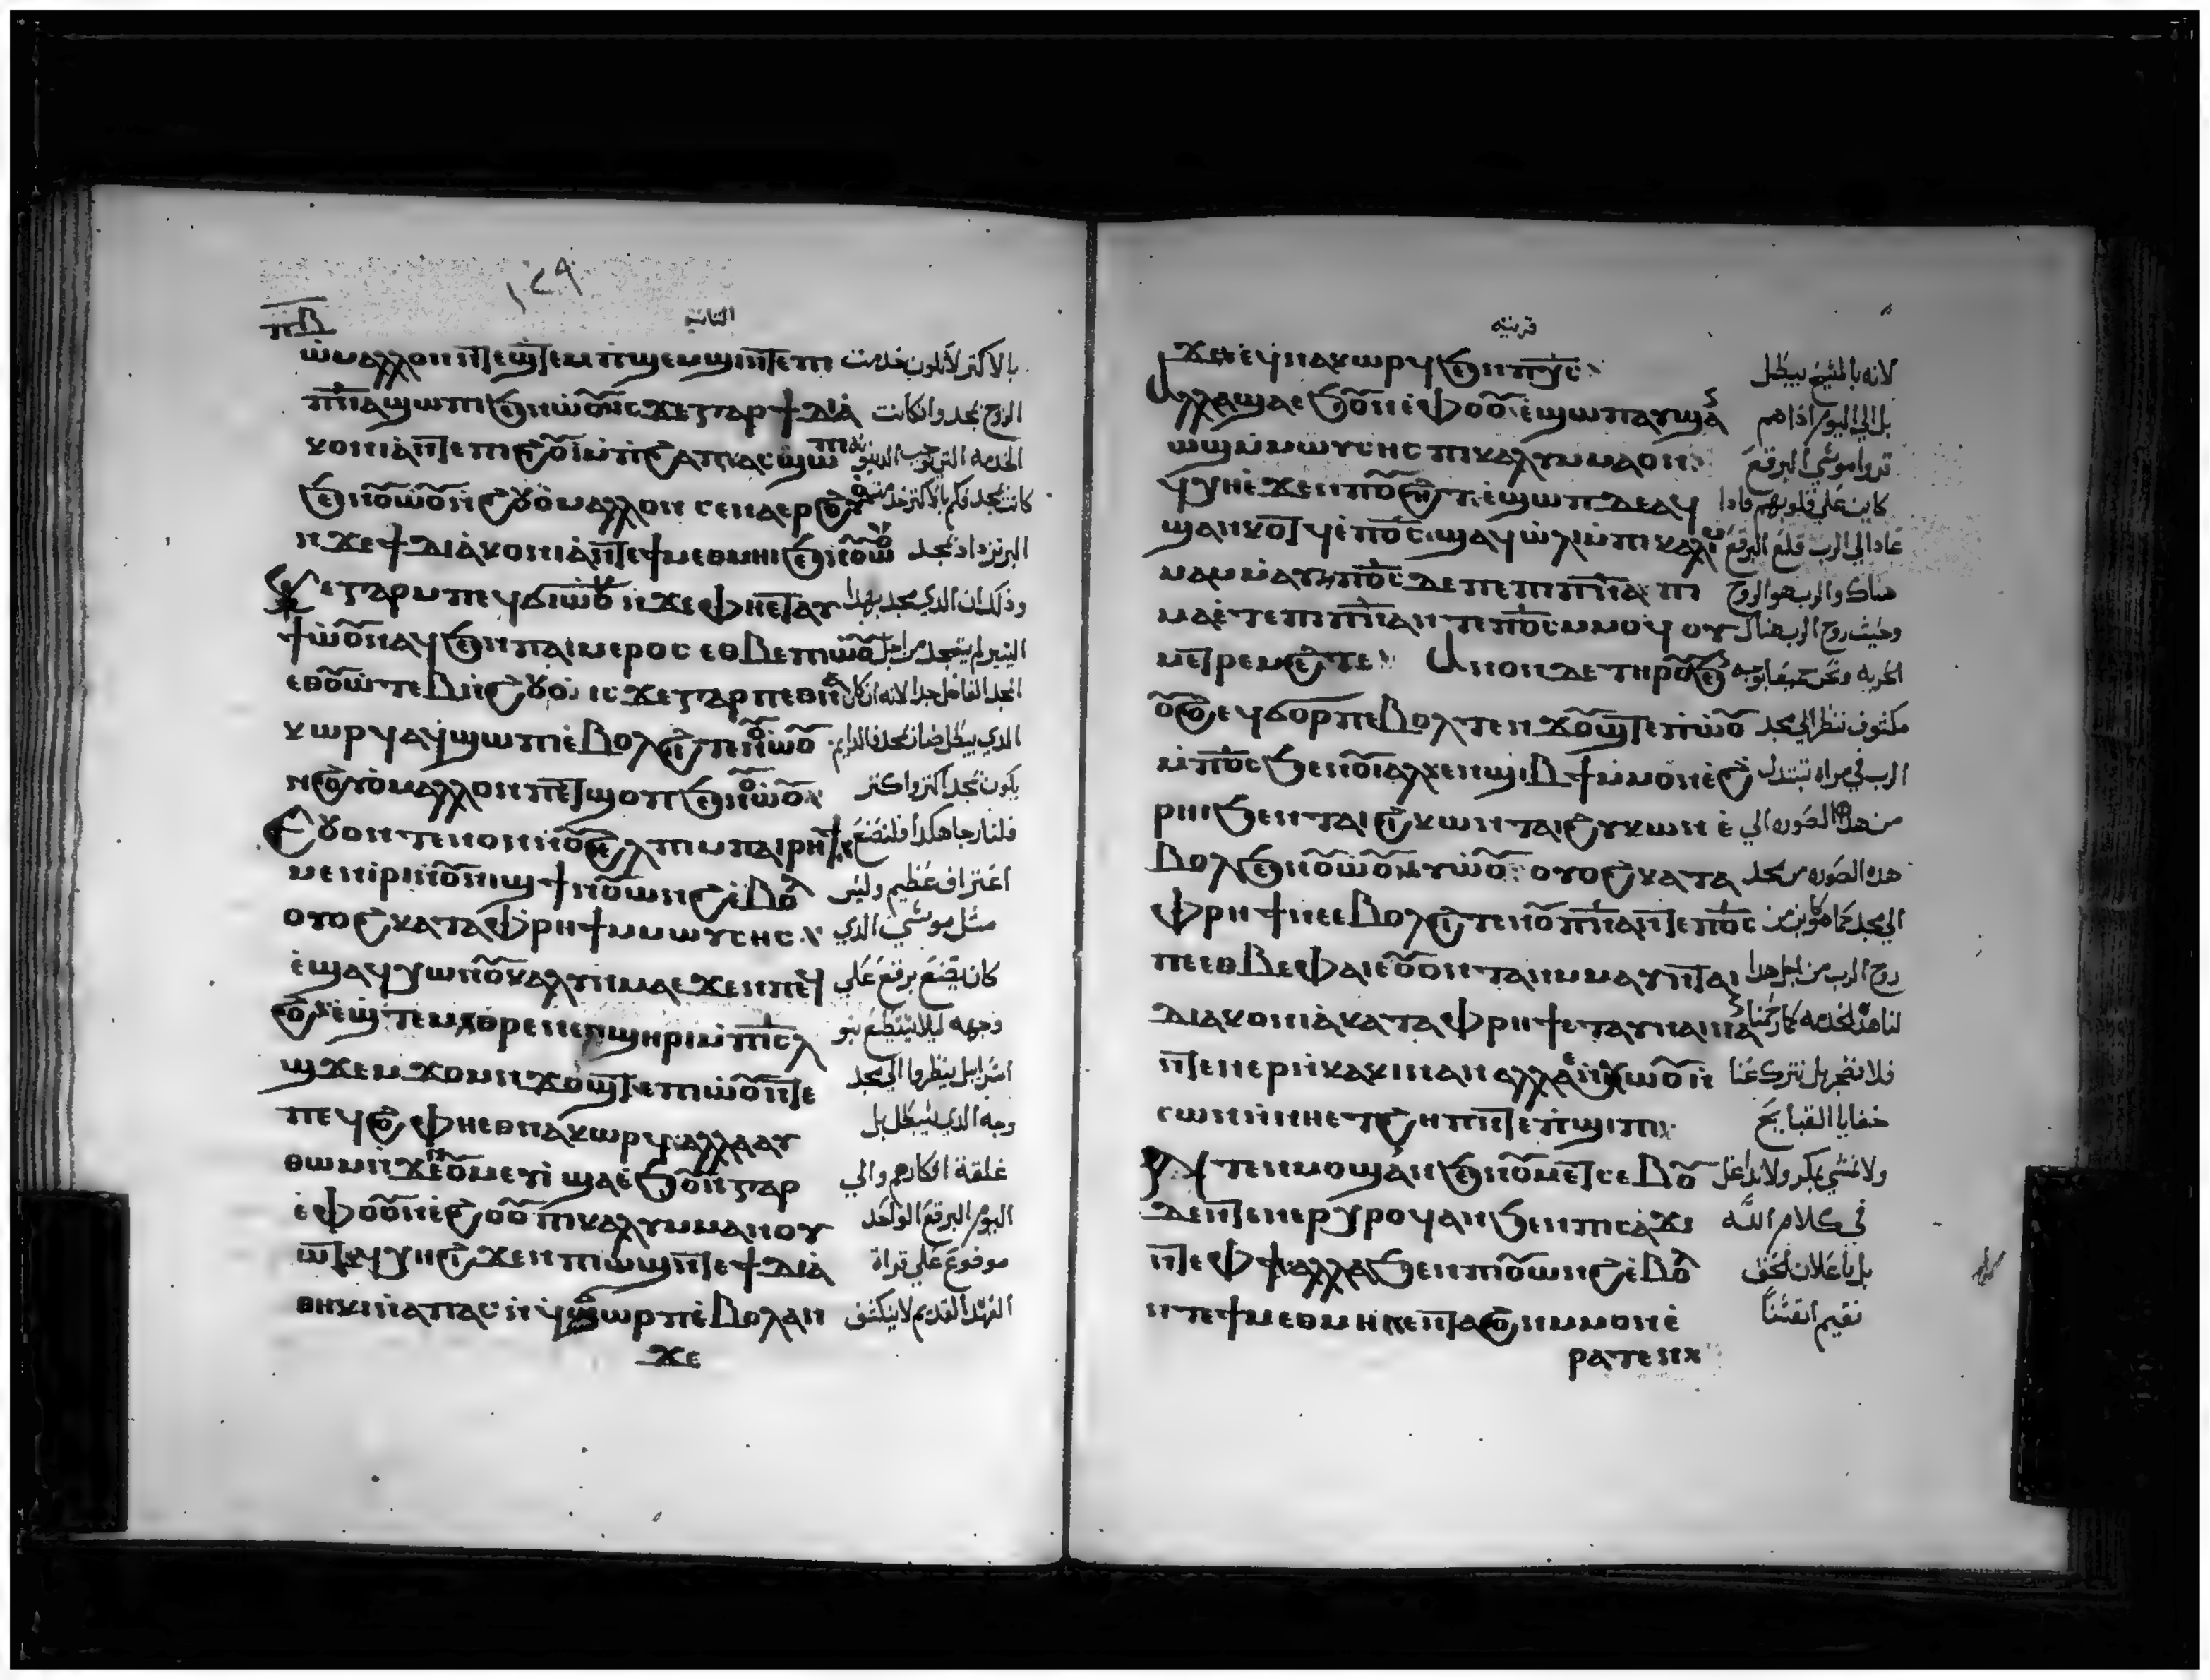 ⲡ̅ⲃ̅
١٢٩
الثانيه
ⲙⲁⲗⲗⲟⲛ ⲛ̄ϫⲉ ⲡϣⲉⲙϣⲓ ⲛ̄ⲧⲉ ⲡⲓ بالاكتر لا تكون خدمت
ⲡ̅ⲛ̅ⲁ̅ ϣⲱⲡⲓ ϧⲉⲛ ⲟⲩⲱⲟⲩ ⲓⲥϫⲉ ⲅⲁⲣ ϯⲇⲓⲁ الروح بمجد وان كانت
ⲕⲟⲛⲓⲁ ⲛ̄ⲧⲉ ⲡⲓϩⲓⲟⲩⲓ ⲙ̀ⲡϩⲁⲡ ⲁⲥϣⲱⲡⲓ الخدمه التي توجب الدينونه
ϧⲉⲛ ⲟⲩⲱⲟⲩ ⲛ̀ϩⲟⲩⲟ ⲙⲁⲗⲗⲟⲛ ⲥⲉⲛⲁⲉⲣϩⲟⲩⲟ كانت بمجد فكم بالاكتر خدمة
ⲛ̀ϫⲉ ϯⲇⲓⲁⲕⲟⲛⲓⲁ ⲛ̄ⲧⲉ ϯⲙⲉⲑⲙⲏⲓ ϧⲉⲛ ⲟⲩⲱⲟⲩ البر تزداد بمجد
ⲕⲉ ⲅⲁⲣ ⲙ̀ⲡⲉϥϭⲓⲱⲟⲩ ⲛ̀ϫⲉ ⲫⲏⲉⲧⲁⲩ وذلك ان الذي مجد بهدا
ϯⲱⲟⲩ ⲛⲁϥ ϧⲉⲛ ⲡⲁⲓⲙⲉⲣⲟⲥ ⲉⲑⲃⲉ ⲡⲓⲱⲟⲩ اليسير لم يتمجد من اجل
ⲉⲑⲟⲩⲱⲧⲉⲃ ⲛ̀ϩⲟⲩⲟ ⲓⲥϫⲉ ⲅⲁⲣ ⲡⲉⲑⲛⲁ المجد الفاضل جدا لانه ان كان
ⲕⲱⲣϥ ⲁϥϣⲱⲡⲓ ⲉⲃⲟⲗϩⲓⲧⲉⲛ ⲟⲩⲱⲟⲩ الذي يبطل صار بمجد فالدايم
ⲛ̀ϩⲟⲩⲟ ⲙⲁⲗⲗⲟⲛ ⲡⲉⲧϣⲟⲡ ϧⲉⲛ ⲟⲩⲱⲟⲩ يكون بمجد اكتر واكتر
ⲉⲟⲩⲟⲛⲧⲉⲛ ⲟⲩⲛ ⲟⲩϩⲉⲗⲡⲓⲥ ⲙ̀ⲡⲁⲓⲣⲏϯ فلنا رجا هكدا فلنصنع
ⲙⲉⲛ ⲓⲣⲓ ⲛ̀ⲟⲩⲛⲓϣϯ ⲛ̀ⲟⲩⲱⲛϩ ⲉⲃⲟⲗ اعتراف عظيم وليس
ⲟⲩⲟϩ ⲕⲁⲧⲁ ⲫⲣⲏϯ ⲙ̀ⲙⲱⲩⲥⲏⲥ مثل موسي الذي
ⲉϣⲁϥⲭⲱ ⲛ̀ⲟⲩⲕⲁⲗⲩⲙⲙⲁ ⲉϫⲉⲛ ⲡⲉϥ كان يضع برقع علي
ϩⲟ ⲉϣⲧⲉⲙⲑⲣⲉ ⲛⲉⲛϣⲏⲣⲓ ⲙ̀ⲡⲓⲥⲗ وجهه ليلا يتطلع بنو
ϣϫⲉⲙϫⲟⲙ ⲛ̀ϫⲟⲩϣⲧ ⲉⲡⲓⲱⲟⲩ ⲛ̄ⲧⲉ اسراييل ينظروا الي مجد
ⲡⲉϥϩⲟ ⲫⲏⲉⲑⲛⲁⲕⲱⲣϥ ⲁⲗⲗⲁ ⲁⲩ وجه الذي سيبطل بل
ⲑⲱⲙ ⲛ̀ϫⲉ ⲛⲟⲩⲙⲉⲩⲓ ϣⲁ ⲉϧⲟⲩⲛ ⲅⲁⲣ غلقة افكارهم والي
ⲉⲫⲟⲟⲩ ⲛ̀ⲉϩⲟⲟⲩ ⲡⲓⲕⲁⲗⲩⲙⲙⲁ ⲛⲟⲩ اليوم البرقع الواحد
ⲱⲧ ϥⲭⲏ ϩⲓϫⲉⲛ ⲡⲓⲱϣ ⲛ̄ⲧⲉ ϯⲇⲓⲁ موضوع علي قراة
ⲑⲏⲕⲏ ⲛ̀ⲁⲡⲁⲥ ⲛ̀ϥϭⲱⲣⲡ ⲉⲃⲟⲗ ⲁⲛ العهد القديم لا ينكشف
ϫⲉ
قرنتيه
ϫⲉ ⲉϥⲛⲁⲕⲱⲣϥ ϧⲉⲛ ⲡⲭ̅ⲥ̅ لانه بالمسيح يبطل
ⲁⲗⲗⲁ ϣⲁ ⲉϧⲟⲩⲛ ⲉⲫⲟⲟⲩ ⲉϣⲱⲡ ⲁⲩϣⲁⲛ بل الي اليوم اذا هم
ⲱϣ ⲙ̀ⲙⲱⲩⲥⲏⲥ ⲡⲓⲕⲁⲗⲩⲙⲙⲁ ⲟⲛ قروا موسي البرقع
ϥⲭⲏ ⲉϫⲉⲛ ⲡⲟⲩϩⲏⲧ ⲉϣⲱⲡ ⲇⲉ ⲁϥ كاين علي قلوبهم فاذا
ϣⲁⲛⲕⲟⲧϥ ⲉⲡⲟ̅ⲥ̅ ϣⲁϥⲱⲗⲓ ⲙ̀ⲡⲓⲕⲁⲗⲩ عاد الي الرب قلع البرقع
ⲙⲙⲁ ⲙ̀ⲙⲁⲩ ⲡⲟ̅ⲥ̅ ⲇⲉ ⲡⲉ ⲡⲓⲡ̅ⲛ̅ⲁ̅ ⲡⲓ هناك والرب هو الروح
ⲙⲁ ⲉⲧⲉ ⲡⲓⲡ̅ⲛ̅ⲁ̅ ⲛ̀ⲧⲉ ⲡⲟ̅ⲥ̅ ⲙ̀ⲙⲟϥ ⲟⲩ وحيث روح الرب هناك
ⲙⲉⲧⲣⲉⲙϩⲉ ⲧⲉ ⲁⲛⲟⲛ ⲇⲉ ⲧⲏⲣⲟⲩ ϧⲉⲛ الحريه ونحن جميعا بوجه
ⲟⲩϩⲟ ⲉϥϭⲟⲣⲡ ⲉⲃⲟⲗ ⲧⲉⲛϫⲟⲩϣⲧ ⲉⲡⲱⲟⲩ مكشوف ننظر الي مجد
ⲙ̀ⲡⲟ̅ⲥ̅ ϧⲉⲛ ⲟⲩⲓⲁⲗ ⲧⲉⲛϣⲓⲃϯ ⲙ̀ⲙⲟⲛ ⲉϩ الرب في مراه نتبدل
ⲣⲏⲓ ϧⲉⲛ ⲧⲁⲓϩⲓⲕⲱⲛ ⲧⲁⲓϩⲩⲕⲱⲛ ⲉ من هذه الصوره الي
ⲃⲟⲗ ϧⲉⲛ ⲟⲩⲱⲟⲩ ⲉⲩⲱⲟⲩ ⲟⲩⲟϩ ⲕⲁⲧⲁ هده الصوره من مجد
ⲫⲣⲏϯ ⲛ̀ⲉⲃⲟⲗϩⲓⲧⲉⲛ ⲟⲩⲡ̅ⲛ̅ⲁ̅ ⲛ̄ⲧⲉ ⲡⲟ̅ⲥ̅ الي مجد كما هو كاين من
ⲡⲉ ⲉⲑⲃⲉ ⲫⲁⲓ ⲉⲟⲩⲟⲛⲧⲁⲛ ⲙ̀ⲙⲁⲩ ⲛ̄ⲧⲁⲓ روح الرب من اجل هدا
ⲇⲓⲁⲕⲟⲛⲓⲁ ⲕⲁⲧⲁ ⲫⲣⲏϯ ⲉⲧⲁⲩⲛⲁⲓ ⲛⲁⲛ لنا هذه الخدمه كما رحمنا
ⲛ̄ⲧⲉⲛⲉⲣⲛ̀ⲕⲁⲕⲓⲛ ⲁⲛ ⲁⲗⲗⲁ ⲉⲛⲭⲱ ⲟⲩⲛ فلا نضجر بل نترك عنا
ⲥⲱⲛ ⲛ̀ⲛⲏⲉⲧϩⲏⲡ ⲛ̄ⲧⲉ ⲡϣⲓⲡⲓ خفايا القبايح
ⲛ̀ⲧⲉⲛⲙⲟϣⲓ ⲁⲛ ϧⲉⲛ ⲟⲩⲙⲉⲧⲥⲉⲃⲟⲩ ولا نمشي بمكر ولا بداغل
ⲇⲉ ⲛ̄ⲧⲉⲛⲉⲣⲭⲣⲟϥ ⲁⲛ ϧⲉⲛ ⲡⲓⲥⲁϫⲓ في كلام الله
ⲛ̄ⲧⲉ ⲫϯ ⲁⲗⲗⲁ ϧⲉⲛ ⲡⲓⲟⲩⲱⲛϩ ⲉⲃⲟⲗ بل باعلان الحق
ⲛ̀ⲧⲉ ϯⲙⲉⲑⲙⲏⲓ ⲉⲛⲧⲁϩⲟ ⲙ̀ⲙⲟⲛ ⲉ نقيم انفسنا
ⲣⲁⲧⲉⲛ